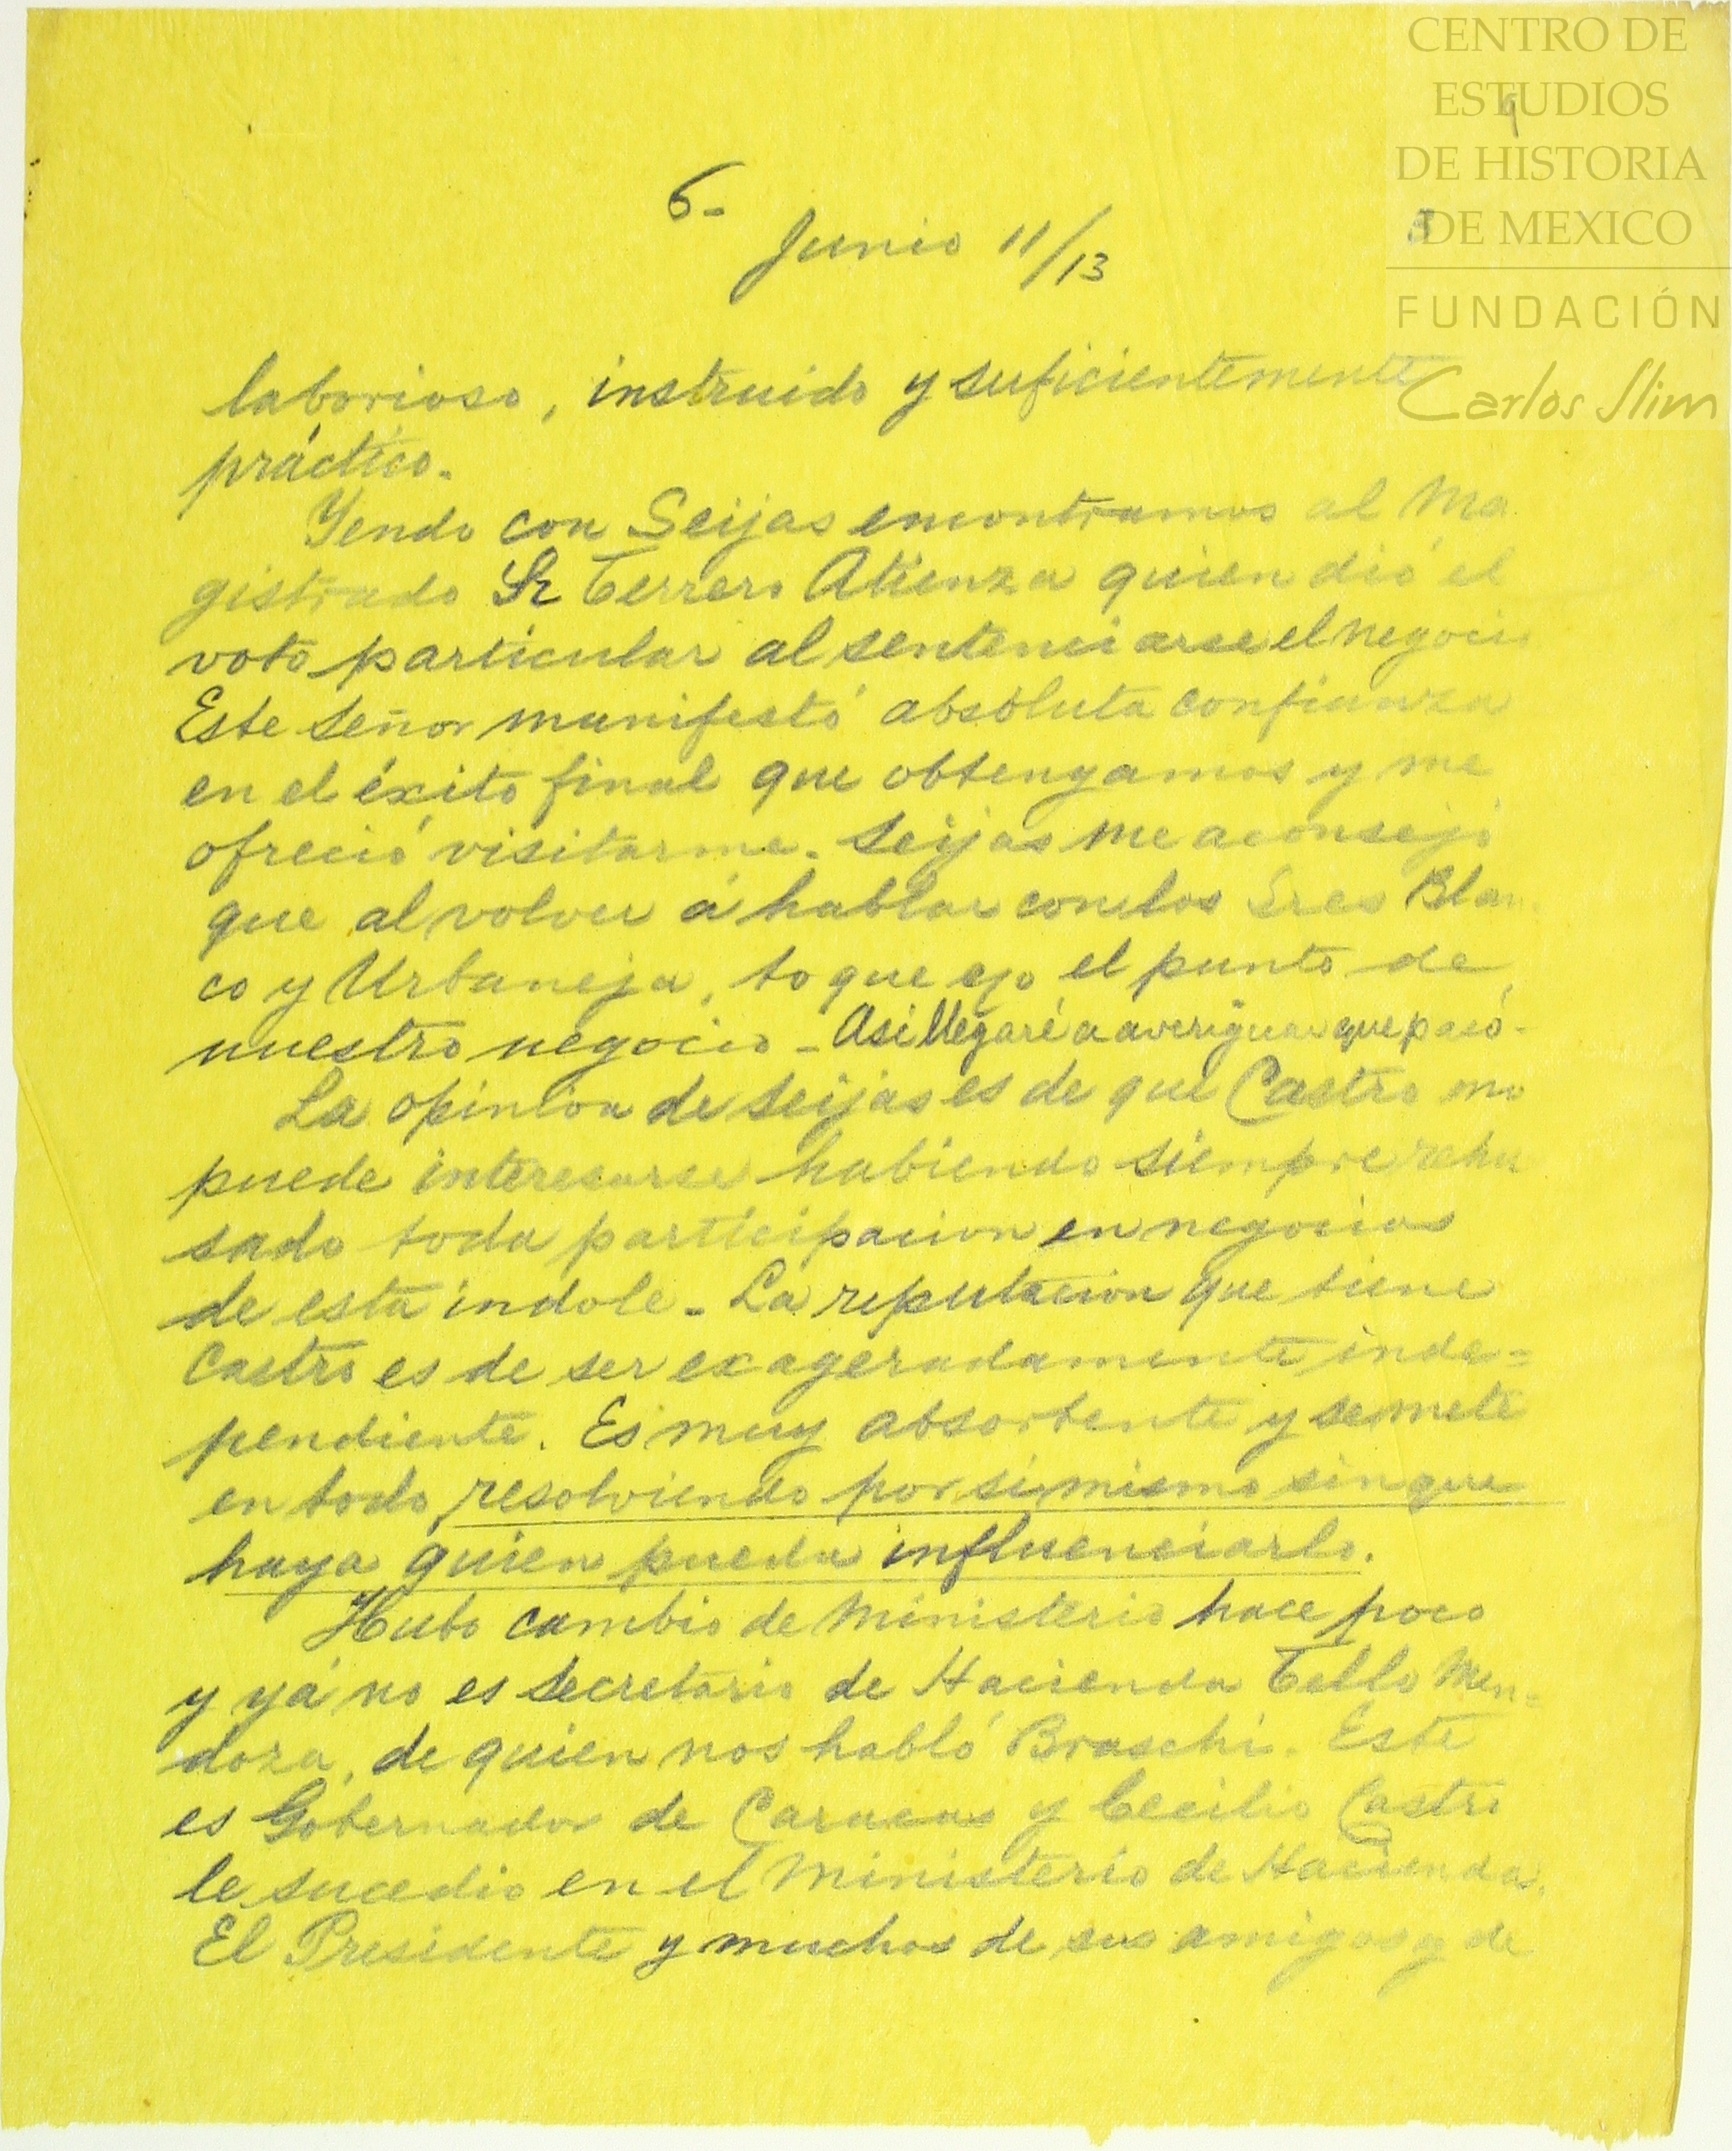 CENTRO DE
ESTUDIOS
DE HISTORIA
DE MEXICO
FUNDACIÓN
Carlos Slim
9
6-
Junio 11/13
laborioso, instruido y suficientemente
práctico.
Yendo con Seijas encontramos al Ma
gistrado Sr Terrero Atienza quien dió el
voto particular al sentenciarse el negocio
Este señor manifestó absoluta confianza
en el éxito final que obtengamos y me
ofreció visitarme. Seijas me aconsejó
que al volver á hablar con los Sres Blan
co y Urbaneja, toque yo el punto de
nuestro negocio - Asi llegaré a averiguar que pasó-
La opinion de Seijas es de que Castro no
puede interesarse habiendo siempre rehu
sado toda participacion en negocios
de esta indole - La reputacion que tiene
Castro es de ser exageradamente inde=
pendiente. Es muy absorbente y se mete
en todo resolviendo por si mismo sin que
haya quien pueda influenciarlo.
Hubo cambio de Ministerio hace poco
y yá no es Secretario de Hacienda Tello Men=
doza, de quien nos habló Braschi. Este
es Gobernador de Caracas y Cecilio Castro
le sucedio en el Ministerio de Hacienda.
El Presidente y muchos de sus amigos y de